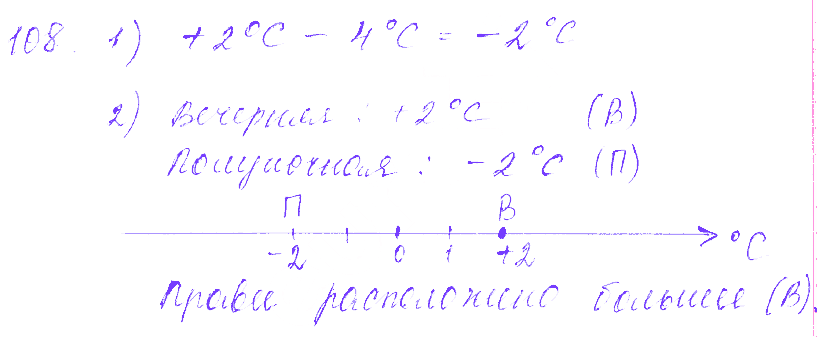 108. 1) +2°C - 4°C = -2°C
2) Вечерняя : +2°C (В)
Полуночная : -2°C (П)
П В
-2 0 1 +2 °C
Правее расположено большее (В).